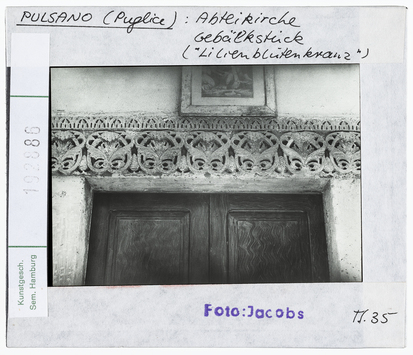 PULSANO (Puglice) : Abteikirche
Gebälkstück
("Lilienblütenkranz")
192886
Kunstgesch.
Sem. Hamburg
Foto: Jacobs